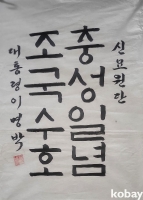 신묘원단
충성일념
조국수호
대통령 이명박
kobay